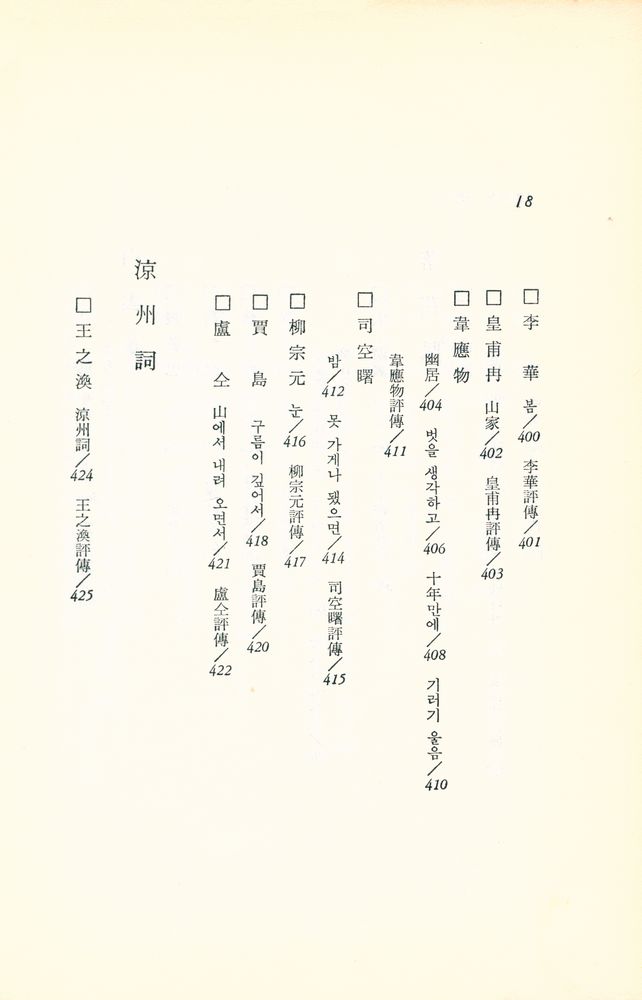 18
□ 李華 봄/400 李華評傳/401
□ 皇甫冉 山家/402 皇甫冉評傳/403
□ 韋應物
幽居/404 벗을 생각하고/406 十年만에/408 기러기 울음/410
韋應物評傳/411
□ 司空曙
밤/412 못 가게나 됐으면/414 司空曙評傳/415
□ 柳宗元 눈/416 柳宗元評傳/417
□ 賈島 구름이 깊어서/418 賈島評傳/420
□ 盧仝 山에서 내려 오면서/421 盧仝評傳/422
涼州詞
□ 王之渙 涼州詞/424 王之渙評傳/425